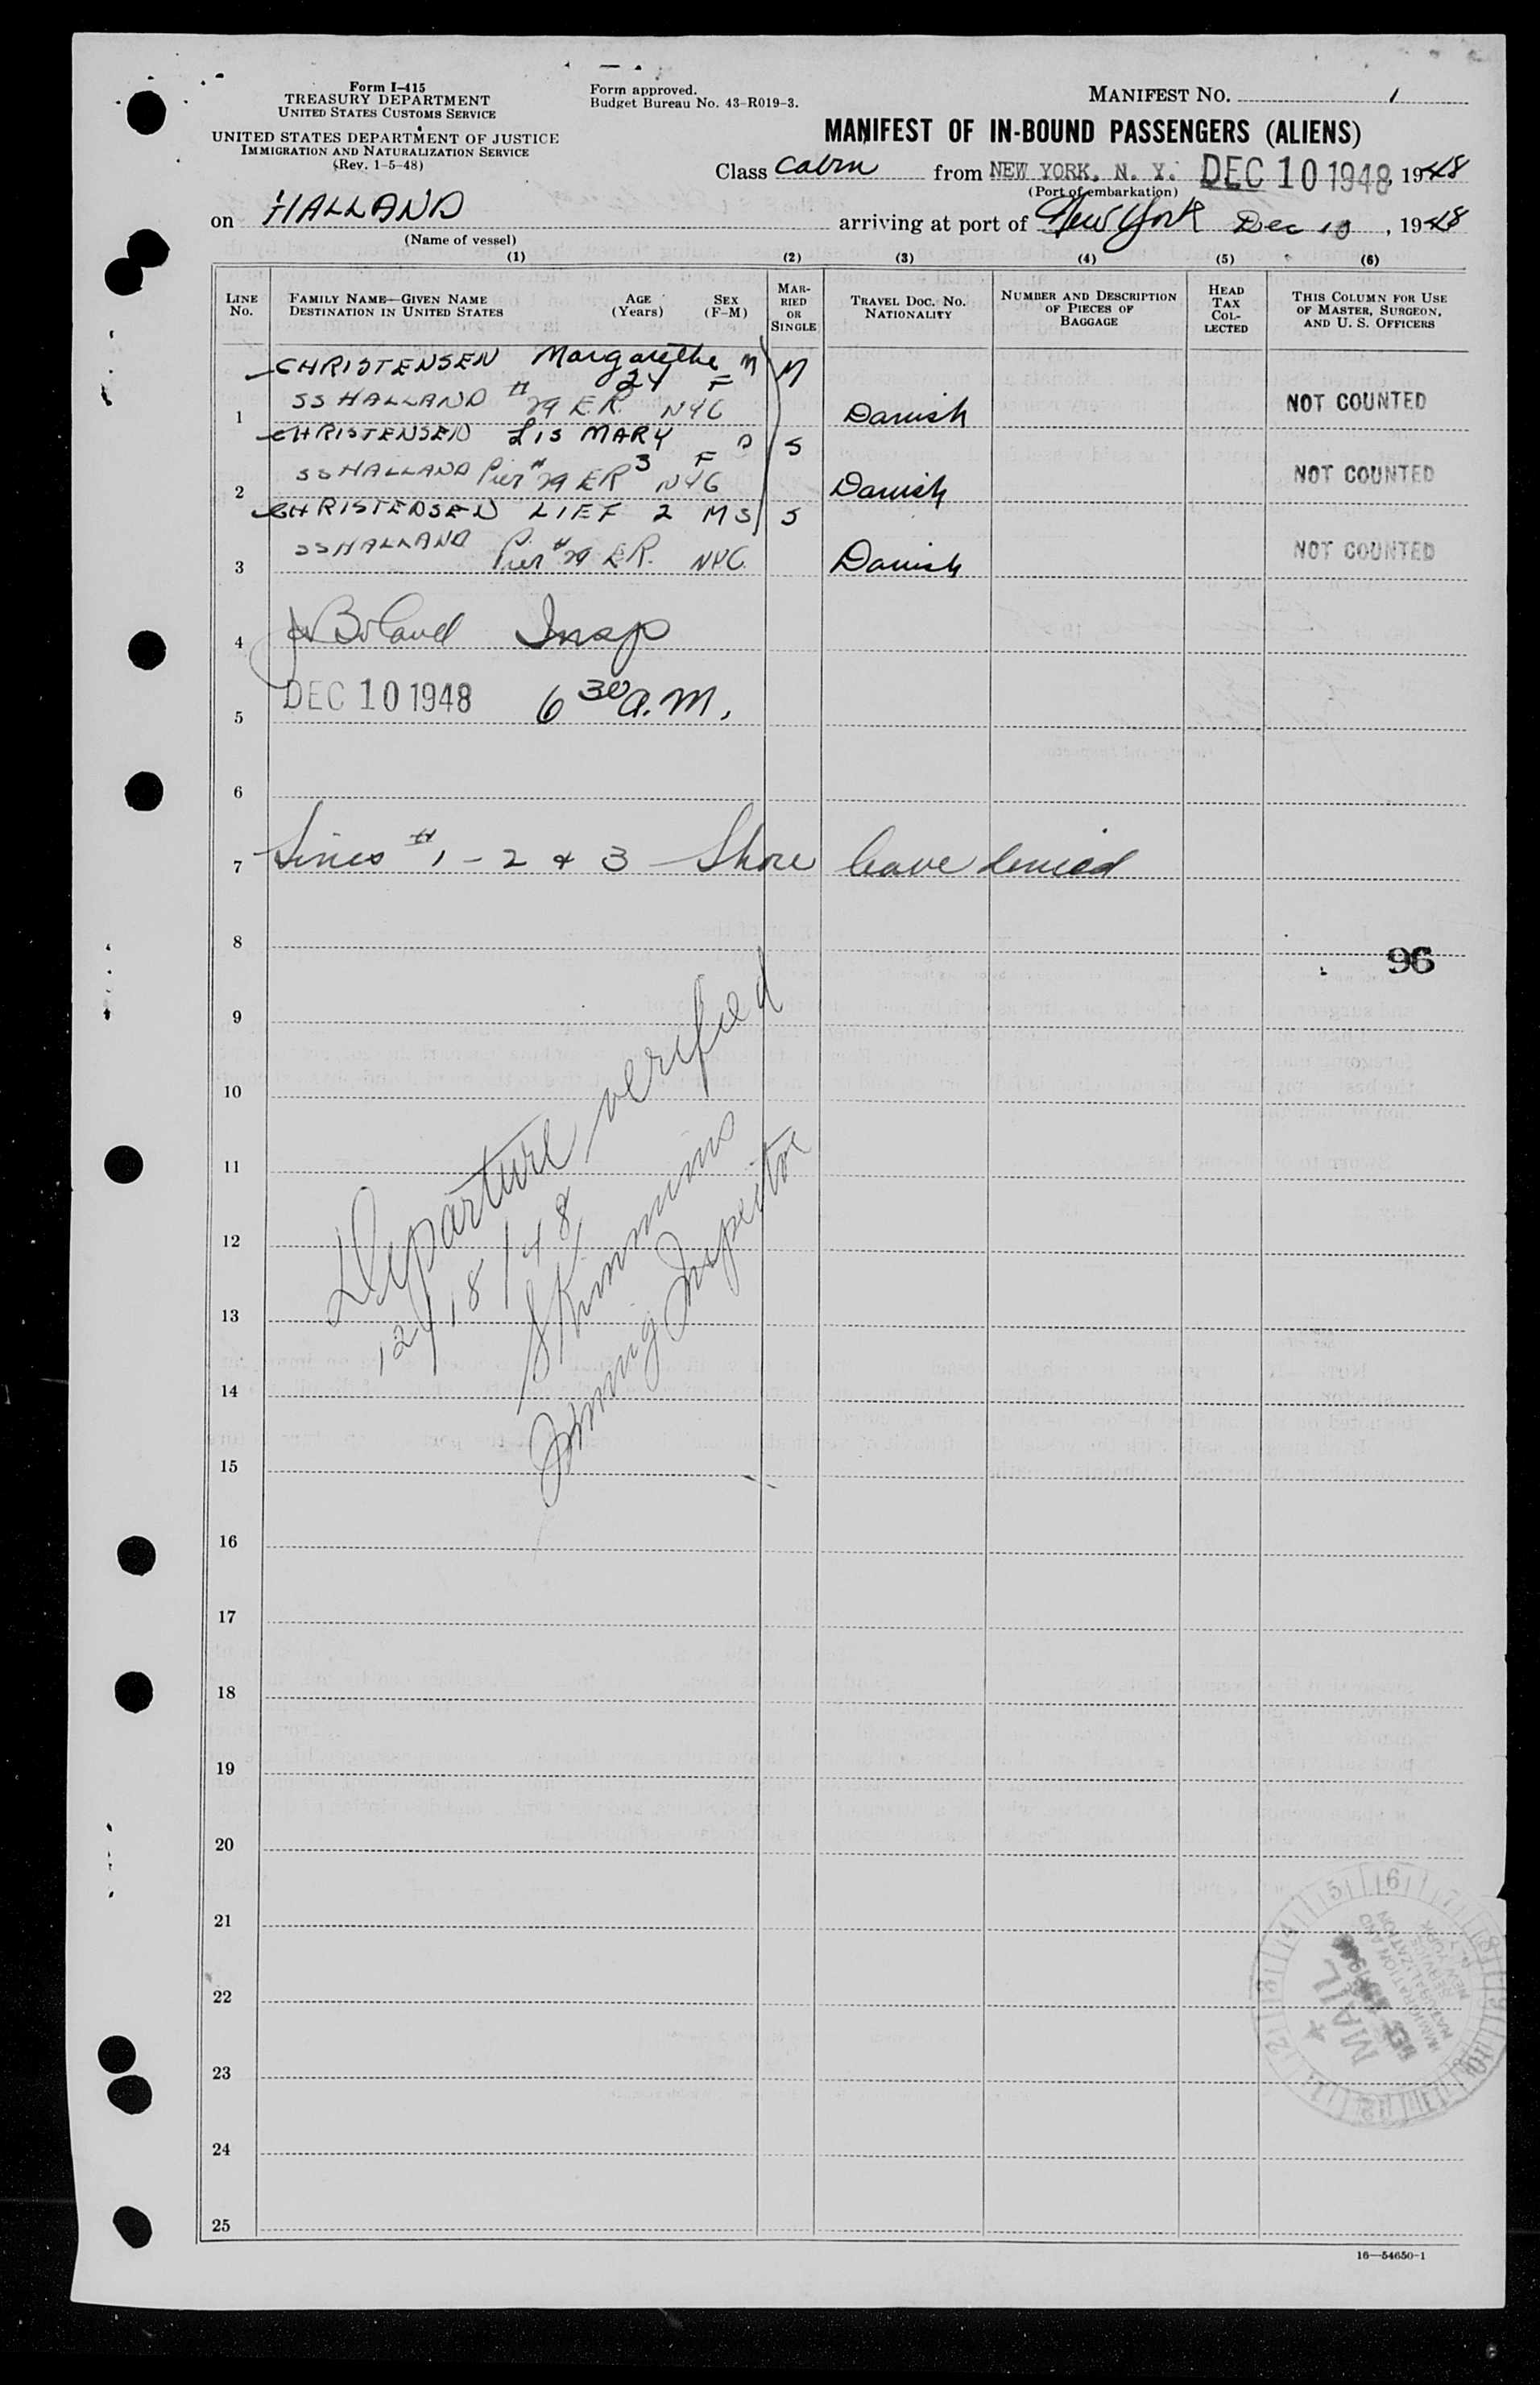 Form I-415
TREASURY DEPARTMENT
UNITED STATES CUSTOMS SERVICE
UNITED STATES DEPARTMENT OF JUSTICE
IMMIGRATION AND NATURALIZATION SERVICE
(Rev. 1-5-48)
Form approved.
Budget Bureau No. 43-R019-3.
MANIFEST NO. 1
MANIFEST OF IN-BOUND PASSENGERS (ALIENS)
Class Cabin from NEW YORK, N. Y. DEC 10 1948, 1948
(Port of embarkation)
on HALLAND arriving at port of New York Dec 10, 1948
(Name of vessel)
(1) (2) (3) (4) (5) (6)
LINE No.
FAMILY NAME—GIVEN NAME
DESTINATION IN UNITED STATES
AGE (Years)
SEX (F-M)
MAR-RIED OR SINGLE
TRAVEL DOC. NO.
NATIONALITY
NUMBER AND DESCRIPTION OF PIECES OF BAGGAGE
HEAD TAX COL-LECTED
THIS COLUMN FOR USE OF MASTER, SURGEON, AND U. S. OFFICERS
CHRISTENSEN Margarethe M M
24 F
1 SS HALLAND # 29 E.R. NYC Danish NOT COUNTED
CHRISTENSEN LIS MARY S
3 F
2 SS HALLAND Pier # 29 ER NYC Danish NOT COUNTED
CHRISTENSEN LIEF 2 M S S
3 SS HALLAND Pier # 29 E.R. NYC Danish NOT COUNTED
4 Boland Insp
5 DEC 10 1948 6 30 a.m.
6
7 Lines # 1 - 2 & 3 Shore leave denied
8
96
9
10
11
12
13
14
15
Departure verified
12/18/48
S Kimmins
Immig Inspector
16
17
18
19
20
21
22
23
24
25
MAIL
IMMIGRATION AND
NATURALIZATION
SERVICE
NEW YORK
N.Y.
16—54650-1